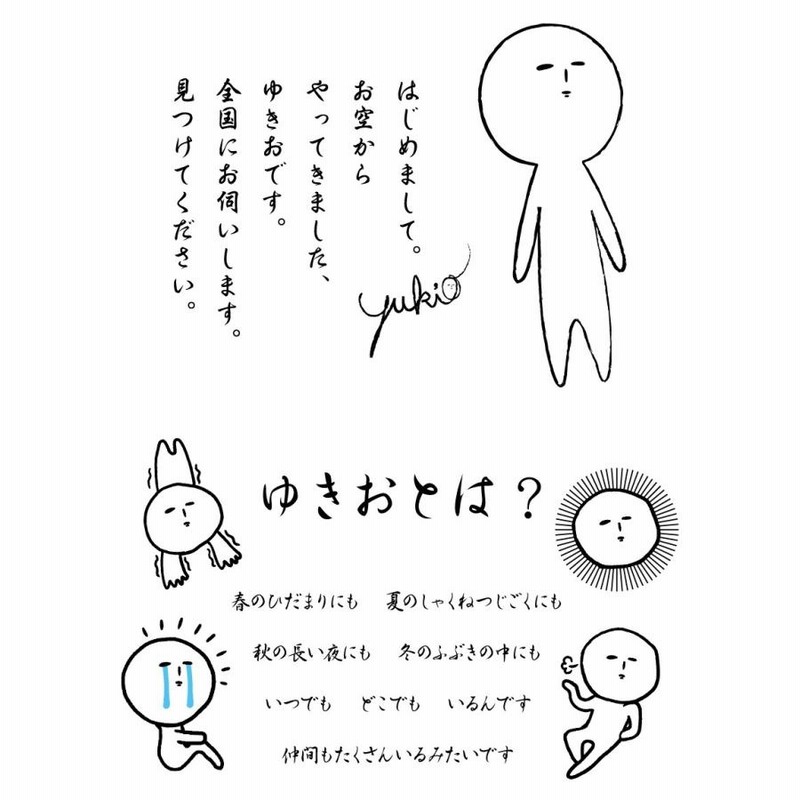 はじめまして。
お空から
やってきました、
ゆきおです。
全国にお伺いします。
見つけてください。
yukio
ゆきおとは？
春のひだまりにも　夏のしゃくねつじごくにも
秋の長い夜にも　冬のふぶきの中にも
いつでも　どこでも　いるんです
仲間もたくさんいるみたいです